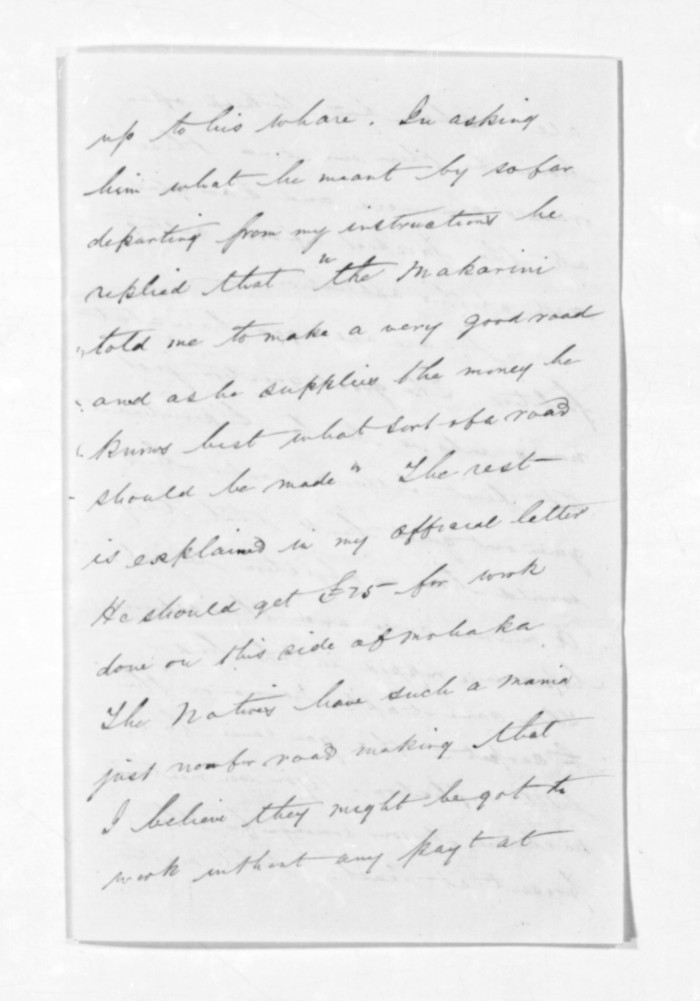 up to his whare. In asking
him what he meant by so far
departing from my instructions he
replied that "the Makarini
"told me to make a very good road
"and as he supplies the money he
"knows best what sort of a road
should be made" The rest
is explained in my official letter
He should get £25 for work
done on this side of Mohaka
The Natives have such a mania
just now for road making that
I believe they might be got to
work without any payt at